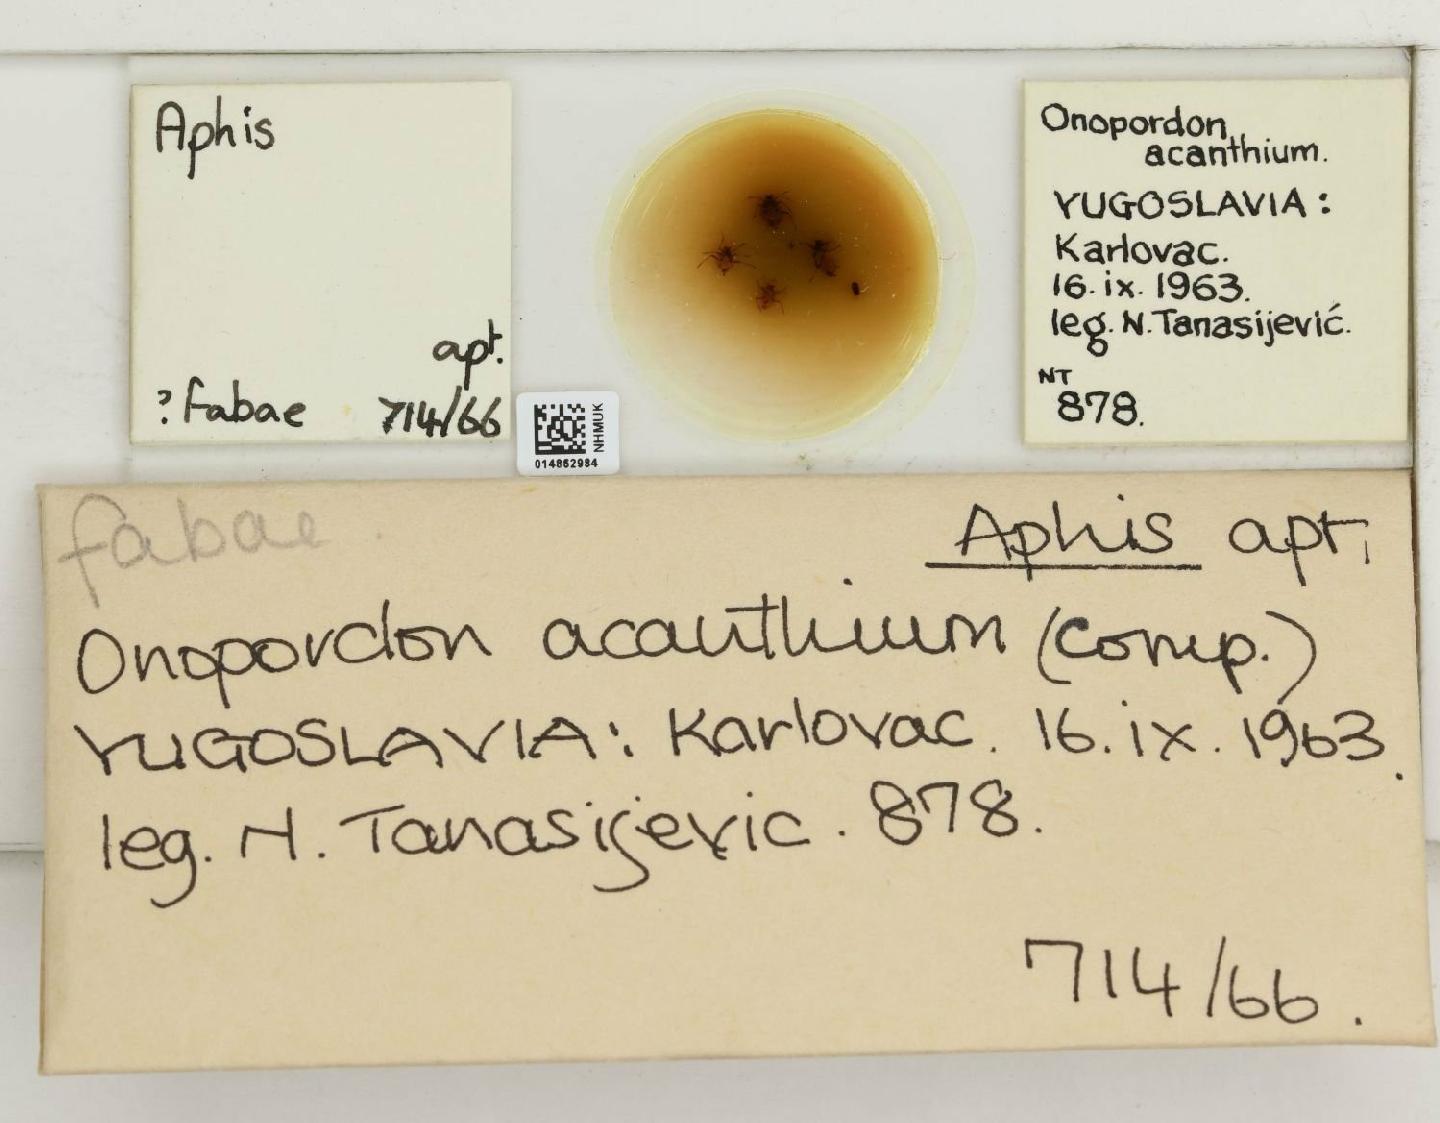 Aphis
apt.
? fabae 714/66
NHMUK
014862984
Onopordon
acanthium.
YUGOSLAVIA:
Karlovac.
16.ix.1963.
leg. N. Tanasijević.
NT
878.
fabae.
Aphis apt.
Onopordon acanthium (Comp.)
YUGOSLAVIA: Karlovac. 16.ix.1963.
leg. N. Tanasijevic. 878.
714/66.